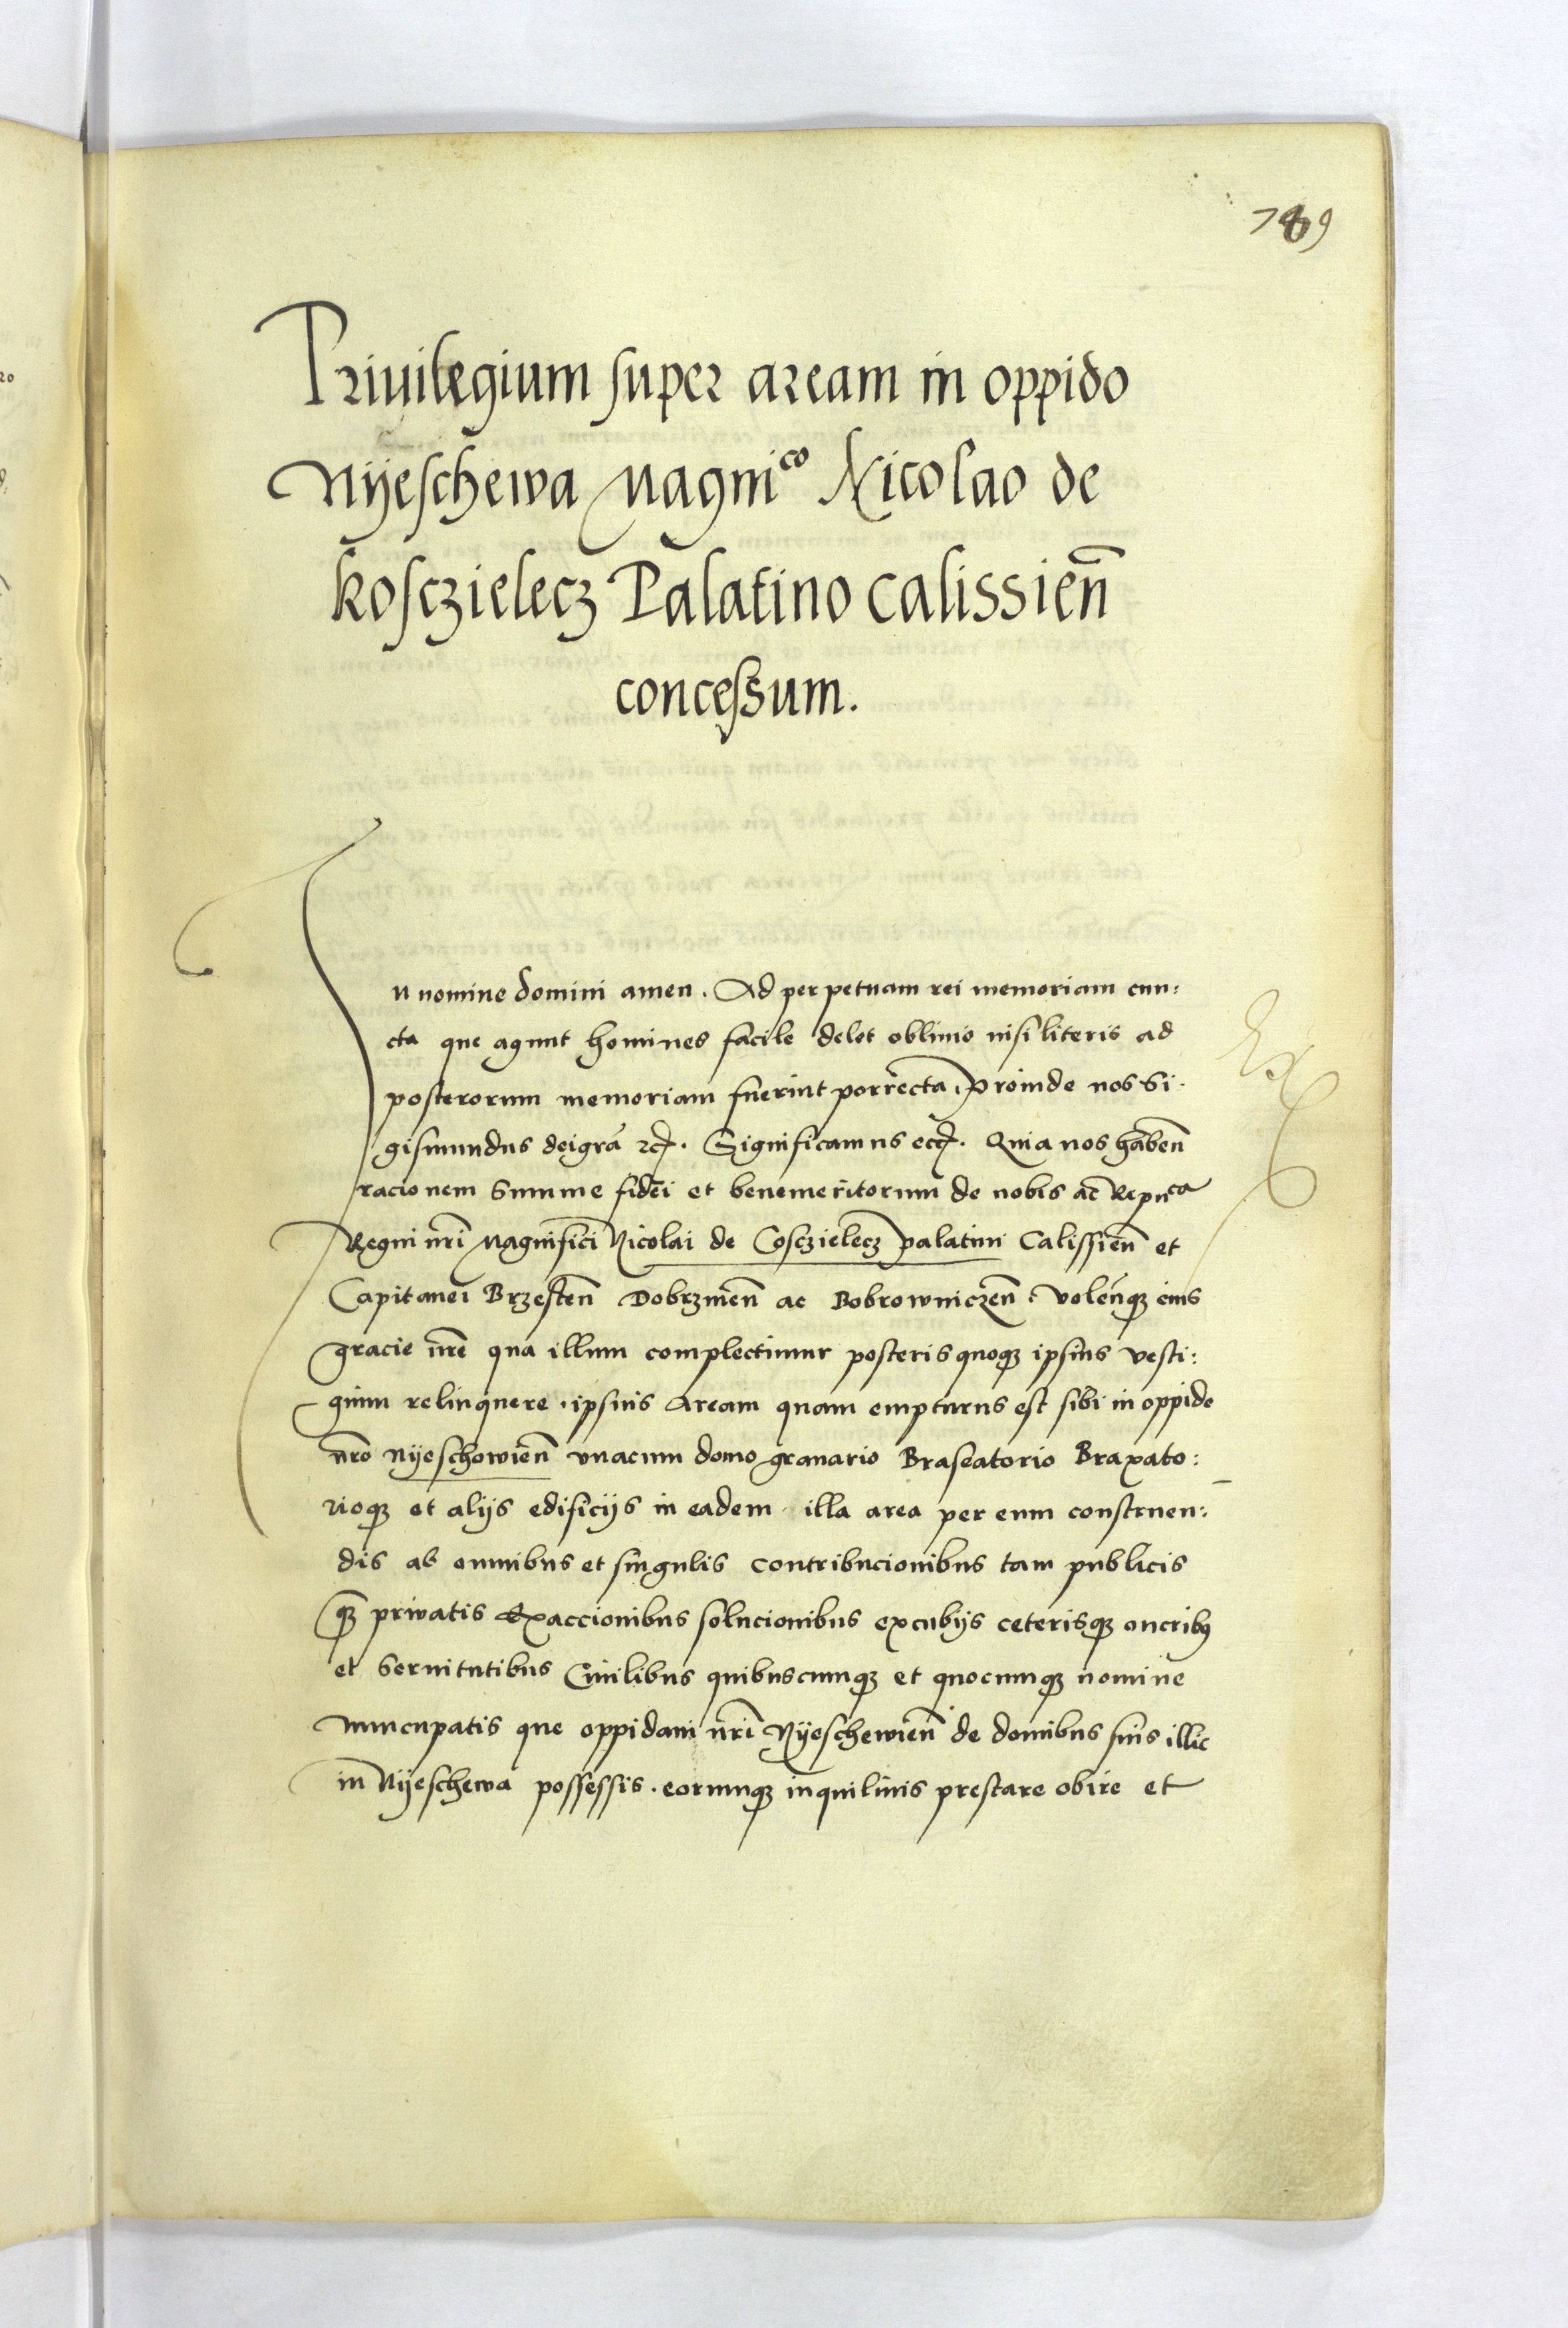 789
Priuilegium super aream in oppido
Nÿeschewa Magniᶜᵒ Nicolao de
kosczielecz Palatino Calissieñ
concessum.
In nomine domini amen. Ad perpetuam rei memoriam cun:
cta que agunt homines facile delet obliuio nisi literis ad
posterorum memoriam fuerint porrecta. Proinde nos Si
gismundus dei grā etc. Significamus etc. Quia nos habeñ
racionem summe fidei et benemeritorum de nobis ac Repuᶜᵃ
Regni nr̄i Magnifici Nicolai de Cosczielecz palatini Calissieñ et
Capitanei Brzesteñ Dobrzineñ ac Bobrowniczeñ. Voleñqꝫ eius
gracie nr̄e qua illum complectimur posteris quoqꝫ ipsius vesti:
gium relinquere. ipsius Aream quam empturus est sibi in oppido
nr̄o Nÿeschowieñ vnacum domo granario Braseatorio Braxato:
rioqꝫ et alijs edificijs in eadem illa area per eum construen:
dis ab omnibus et singulis contribucionibus tam publicis
qꝫ priuatis Exaccionibus solucionibus excubijs ceterisqꝫ oneribꝫ
et seruitutibus Ciuilibus quibuscumqꝫ et quocumqꝫ nomine
nuncupatis que oppidani nr̄i Nÿeschewieñ de domibus suis illic
in Nÿeschewa possessis. eorumqꝫ inquilinis prestare obire et